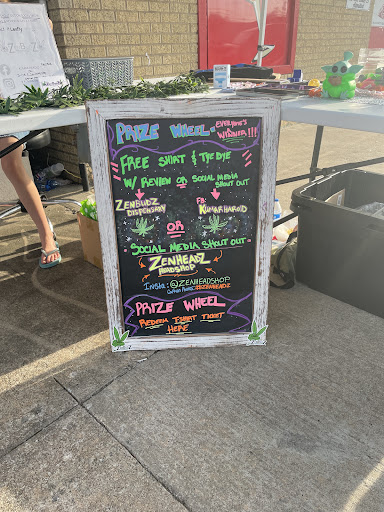 PRIZE WHEEL - EVERYONE'S A WINNER!!!
FREE SHIRT & TYE DYE
W/ REVIEW OR SOCIAL MEDIA SHOUT OUT
ZENBUDZ DISPENSARY
FB:
OR
SOCIAL MEDIA SHOUT OUT
ZENHEADZ
HEADSHOP
INSTA: @ZENHEADSHOP
PRIZE WHEEL
REDEEM EVENT TICKET
HERE